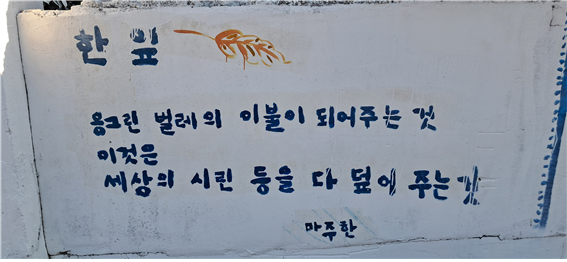 한 잎
옹크린 벌레의 이불이 되어주는 것
이것은
세상의 시린 등을 다 덮어 주는 것
마주한